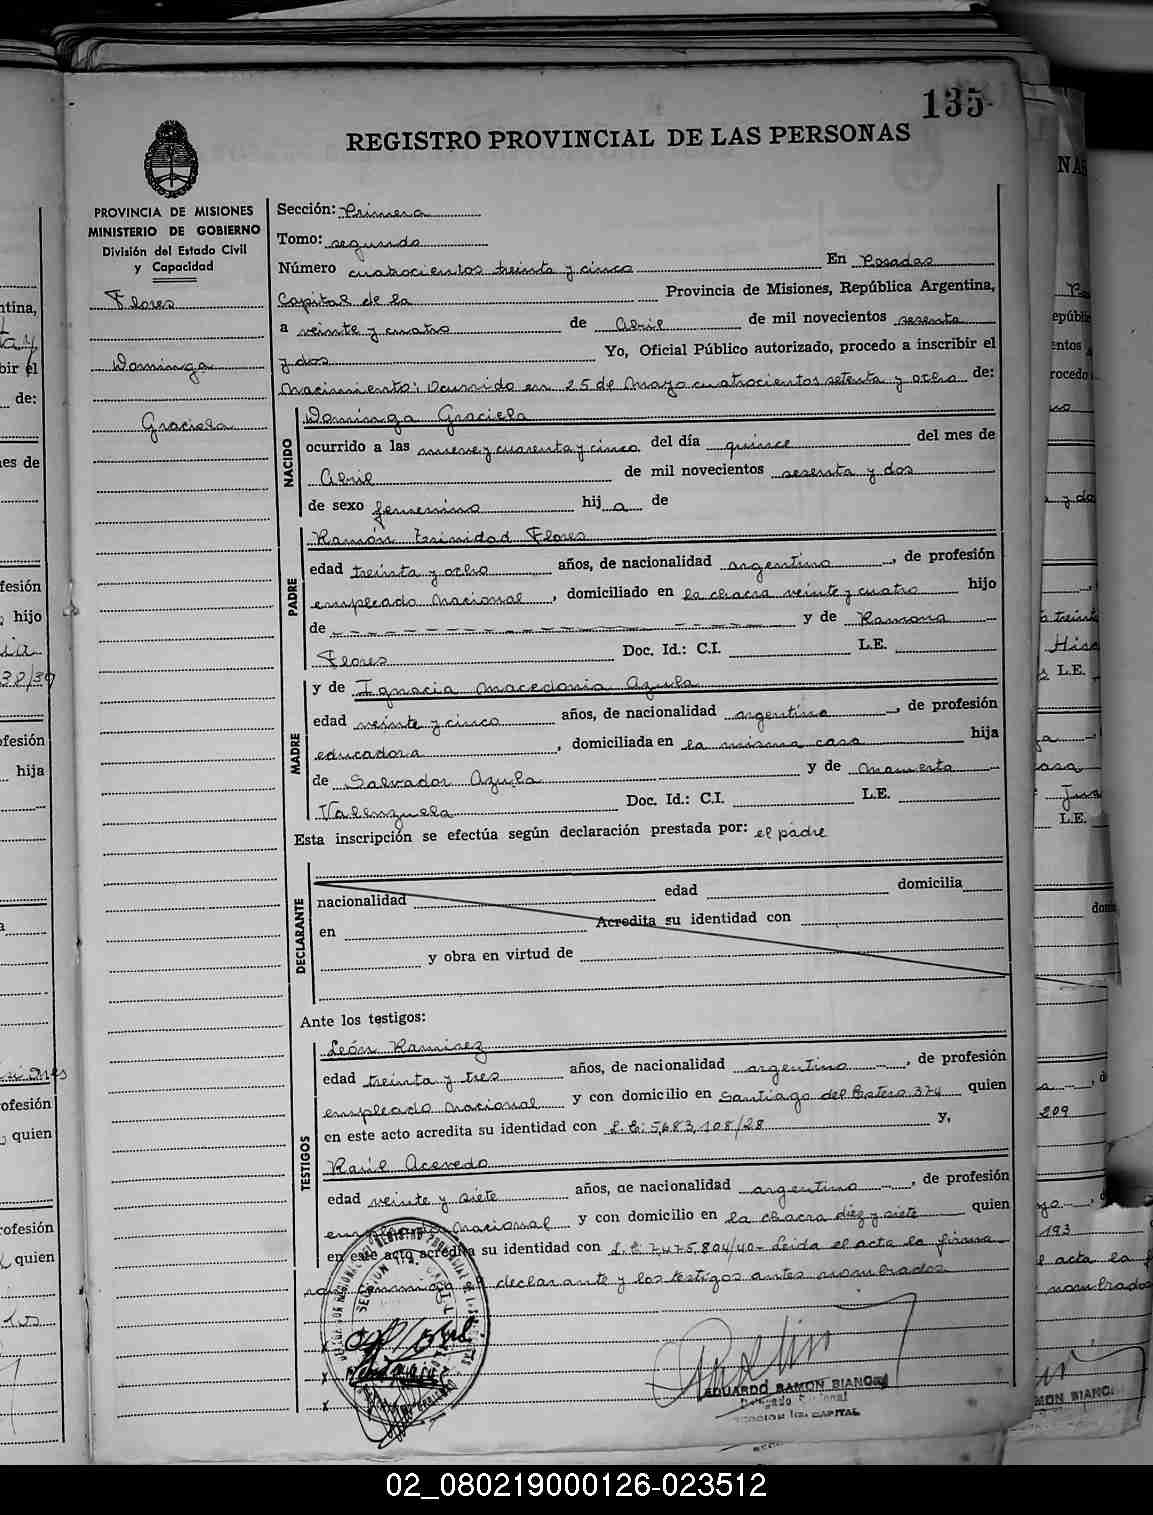 135
REGISTRO PROVINCIAL DE LAS PERSONAS
PROVINCIA DE MISIONES
MINISTERIO DE GOBIERNO
División del Estado Civil
y Capacidad
Flores
Dominga
Graciela
Sección: Primera
Tomo: segundo
Número cuatrocientos treinta y cinco En Posadas
Capital de la Provincia de Misiones, República Argentina,
a veinte y cuatro de Abril de mil novecientos sesenta
y dos Yo, Oficial Público autorizado, procedo a inscribir el
nacimiento: Ocurrido en 25 de Mayo cuatrocientos setenta y ocho de:
NACIDO
Dominga Graciela
ocurrido a las nueve y cuarenta y cinco del día quince del mes de
Abril de mil novecientos sesenta y dos
de sexo femenino hija de
PADRE
Ramón Trinidad Flores
edad treinta y ocho años, de nacionalidad argentino, de profesión
empleado nacional, domiciliado en la chacra veinte y cuatro hijo
de y de Ramona
Flores Doc. Id.: C.I. L.E.
MADRE
y de Ignacia Macedonia Azula
edad veinte y cinco años, de nacionalidad argentina, de profesión
educadora, domiciliada en la misma casa hija
de Salvador Azula y de
Valenzuela Doc. Id.: C.I. L.E.
Esta inscripción se efectúa según declaración prestada por: el padre
DECLARANTE
nacionalidad edad domicilia
en Acredita su identidad con
y obra en virtud de
Ante los testigos:
TESTIGOS
León Ramirez
edad treinta y tres años, de nacionalidad argentino, de profesión
empleado nacional y con domicilio en Santiago del Estero 374 quien
en este acto acredita su identidad con L.E: 5,683,108/28 y,
Raúl Acevedo
edad veinte y siete años, de nacionalidad argentino, de profesión
nacional y con domicilio en la chacra diez y siete quien
en este acto acredita su identidad con L.E: 7,475,804/40- Leida el acta la firman
declarante y los testigos antes nombrados
EDUARDO RAMON BIANCHI
SECCION 1ra. CAPITAL
02_080219000126-023512